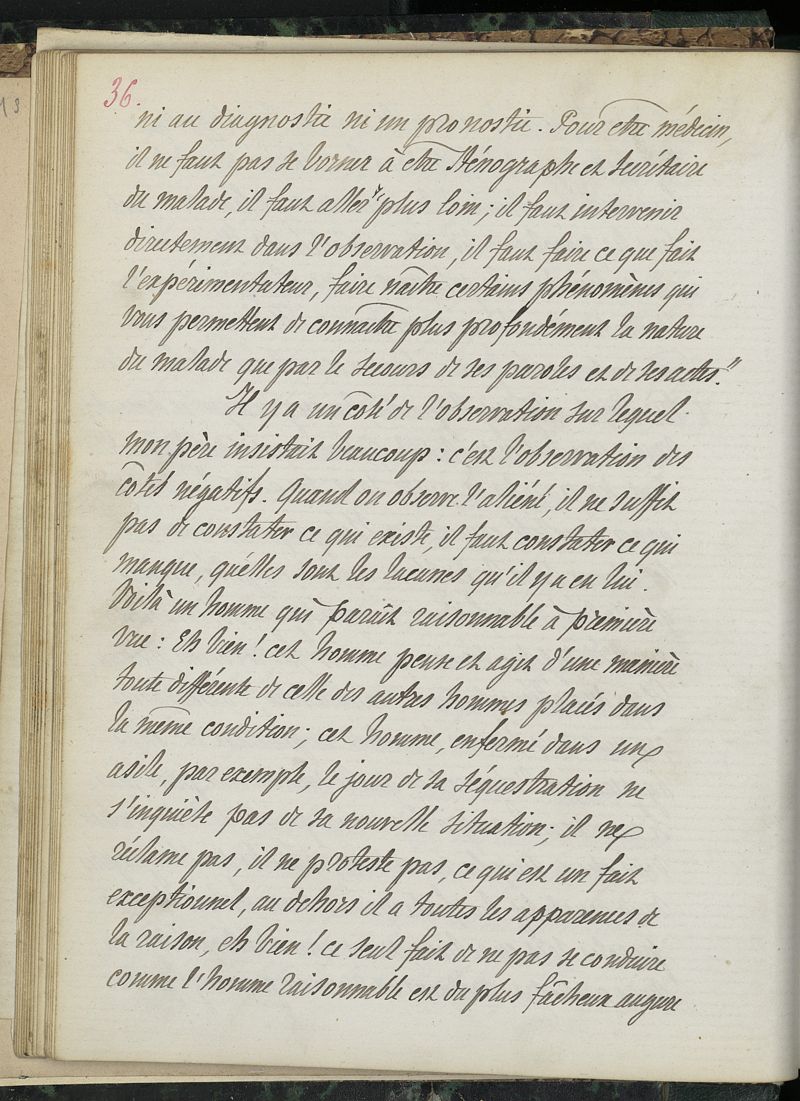 36.
ni au diagnostic ni un pronostic. Pour être médecin,
il ne faut pas se borner à être sténographe et secrétaire
du malade, il faut aller plus loin; il faut intervenir
directement dans l'observation, il faut faire ce que fait
l'expérimentateur, faire naître certains phénomènes qui
vous permettent de connaître plus profondément la nature
du malade que par le secours de ses paroles et de ses actes."
Il y a un côté de l'observation sur lequel
mon père insistait beaucoup: c'est l'observation des
côtés négatifs. Quand on observe l'aliéné, il ne suffit
pas de constater ce qui existe, il faut constater ce qui
manque, quelles sont les lacunes qu'il y a en lui.
Voilà un homme qui paraît raisonnable à première
vue: Eh bien! cet homme pense et agit d'une manière
toute différente de celle des autres hommes placés dans
la même condition; cet homme, enfermé dans un
asile, par exemple, le jour de sa séquestration ne
s'inquiète pas de sa nouvelle situation; il ne
réclame pas, il ne proteste pas, ce qui est un fait
exceptionnel, au dehors il a toutes les apparences de
la raison, eh bien! ce seul fait de ne pas se conduire
comme l'homme raisonnable est du plus fâcheux augure